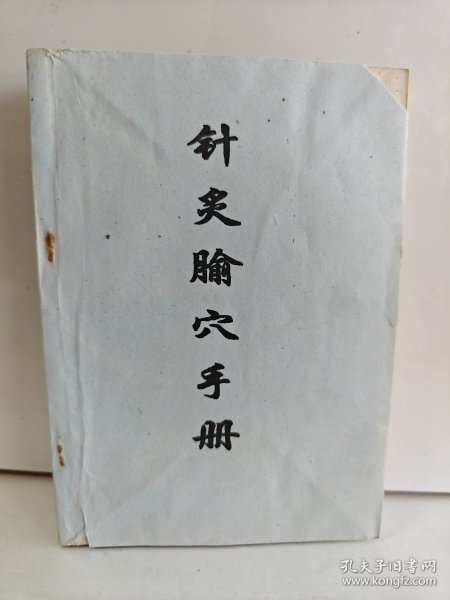 针灸腧穴手册
孔夫子旧书网
www.kongfz.com